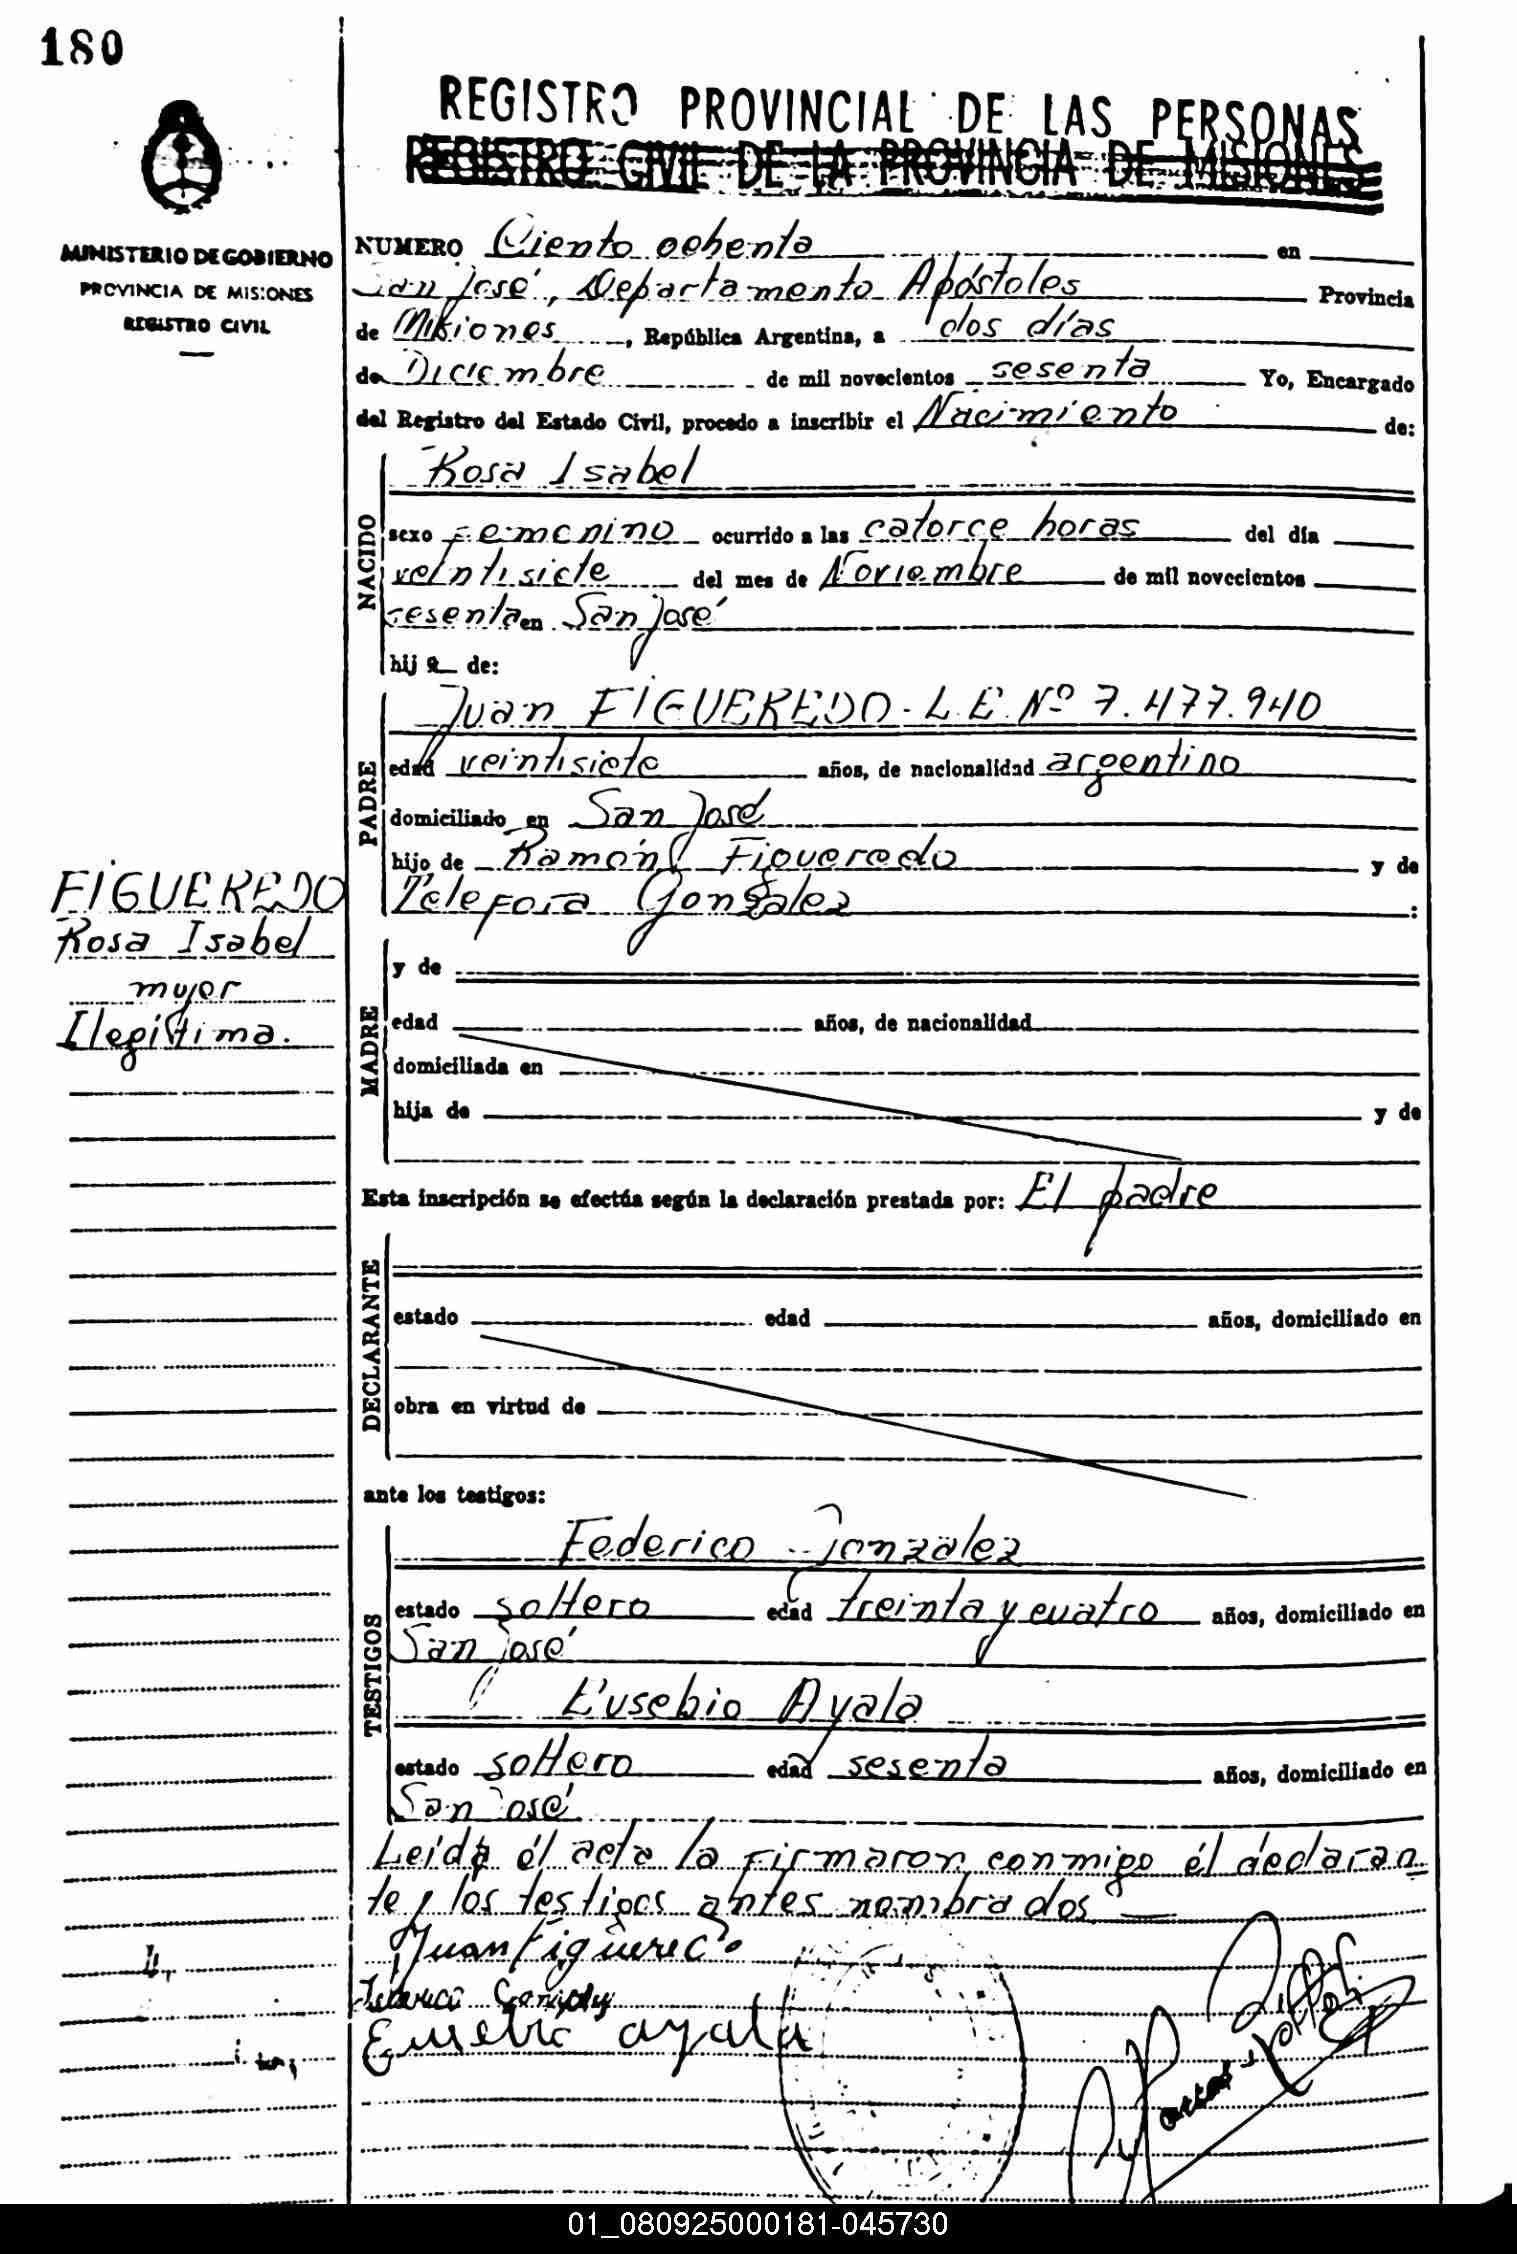 180
REGISTRO PROVINCIAL DE LAS PERSONAS
REGISTRO CIVIL DE LA PROVINCIA DE MISIONES
MINISTERIO DE GOBIERNO
PROVINCIA DE MISIONES
REGISTRO CIVIL
NUMERO Ciento ochenta en
San José, Departamento Apóstoles Provincia
de Misiones, República Argentina, a dos días
de Diciembre de mil novecientos sesenta Yo, Encargado
del Registro del Estado Civil, procedo a inscribir el Nacimiento de:
NACIDO
Rosa Isabel
sexo Femenino ocurrido a las catorce horas del día
veintisiete del mes de Noviembre de mil novecientos
sesenta en San José
hija de:
PADRE
Juan FIGUEREDO - L.E. Nº 7.477.940
edad veintisiete años, de nacionalidad argentino
domiciliado en San José
hijo de Ramón Figueredo y de
Telefora Gonzalez :
FIGUEREDO
Rosa Isabel
mujer
Ilegítima.
MADRE
y de
edad años, de nacionalidad
domiciliada en
hija de y de
Esta inscripción se efectúa según la declaración prestada por: El padre
DECLARANTE
estado edad años, domiciliado en
obra en virtud de
ante los testigos:
TESTIGOS
Federico Gonzalez
estado soltero edad treinta y cuatro años, domiciliado en
San José
Eusebio Ayala
estado soltero edad sesenta años, domiciliado en
San José
Leída él acta la firmaron conmigo él declaran
te y los testigos antes nombrados
Juan Figueredo
Federico Gonzalez
Eusebio ayala
01_080925000181-045730